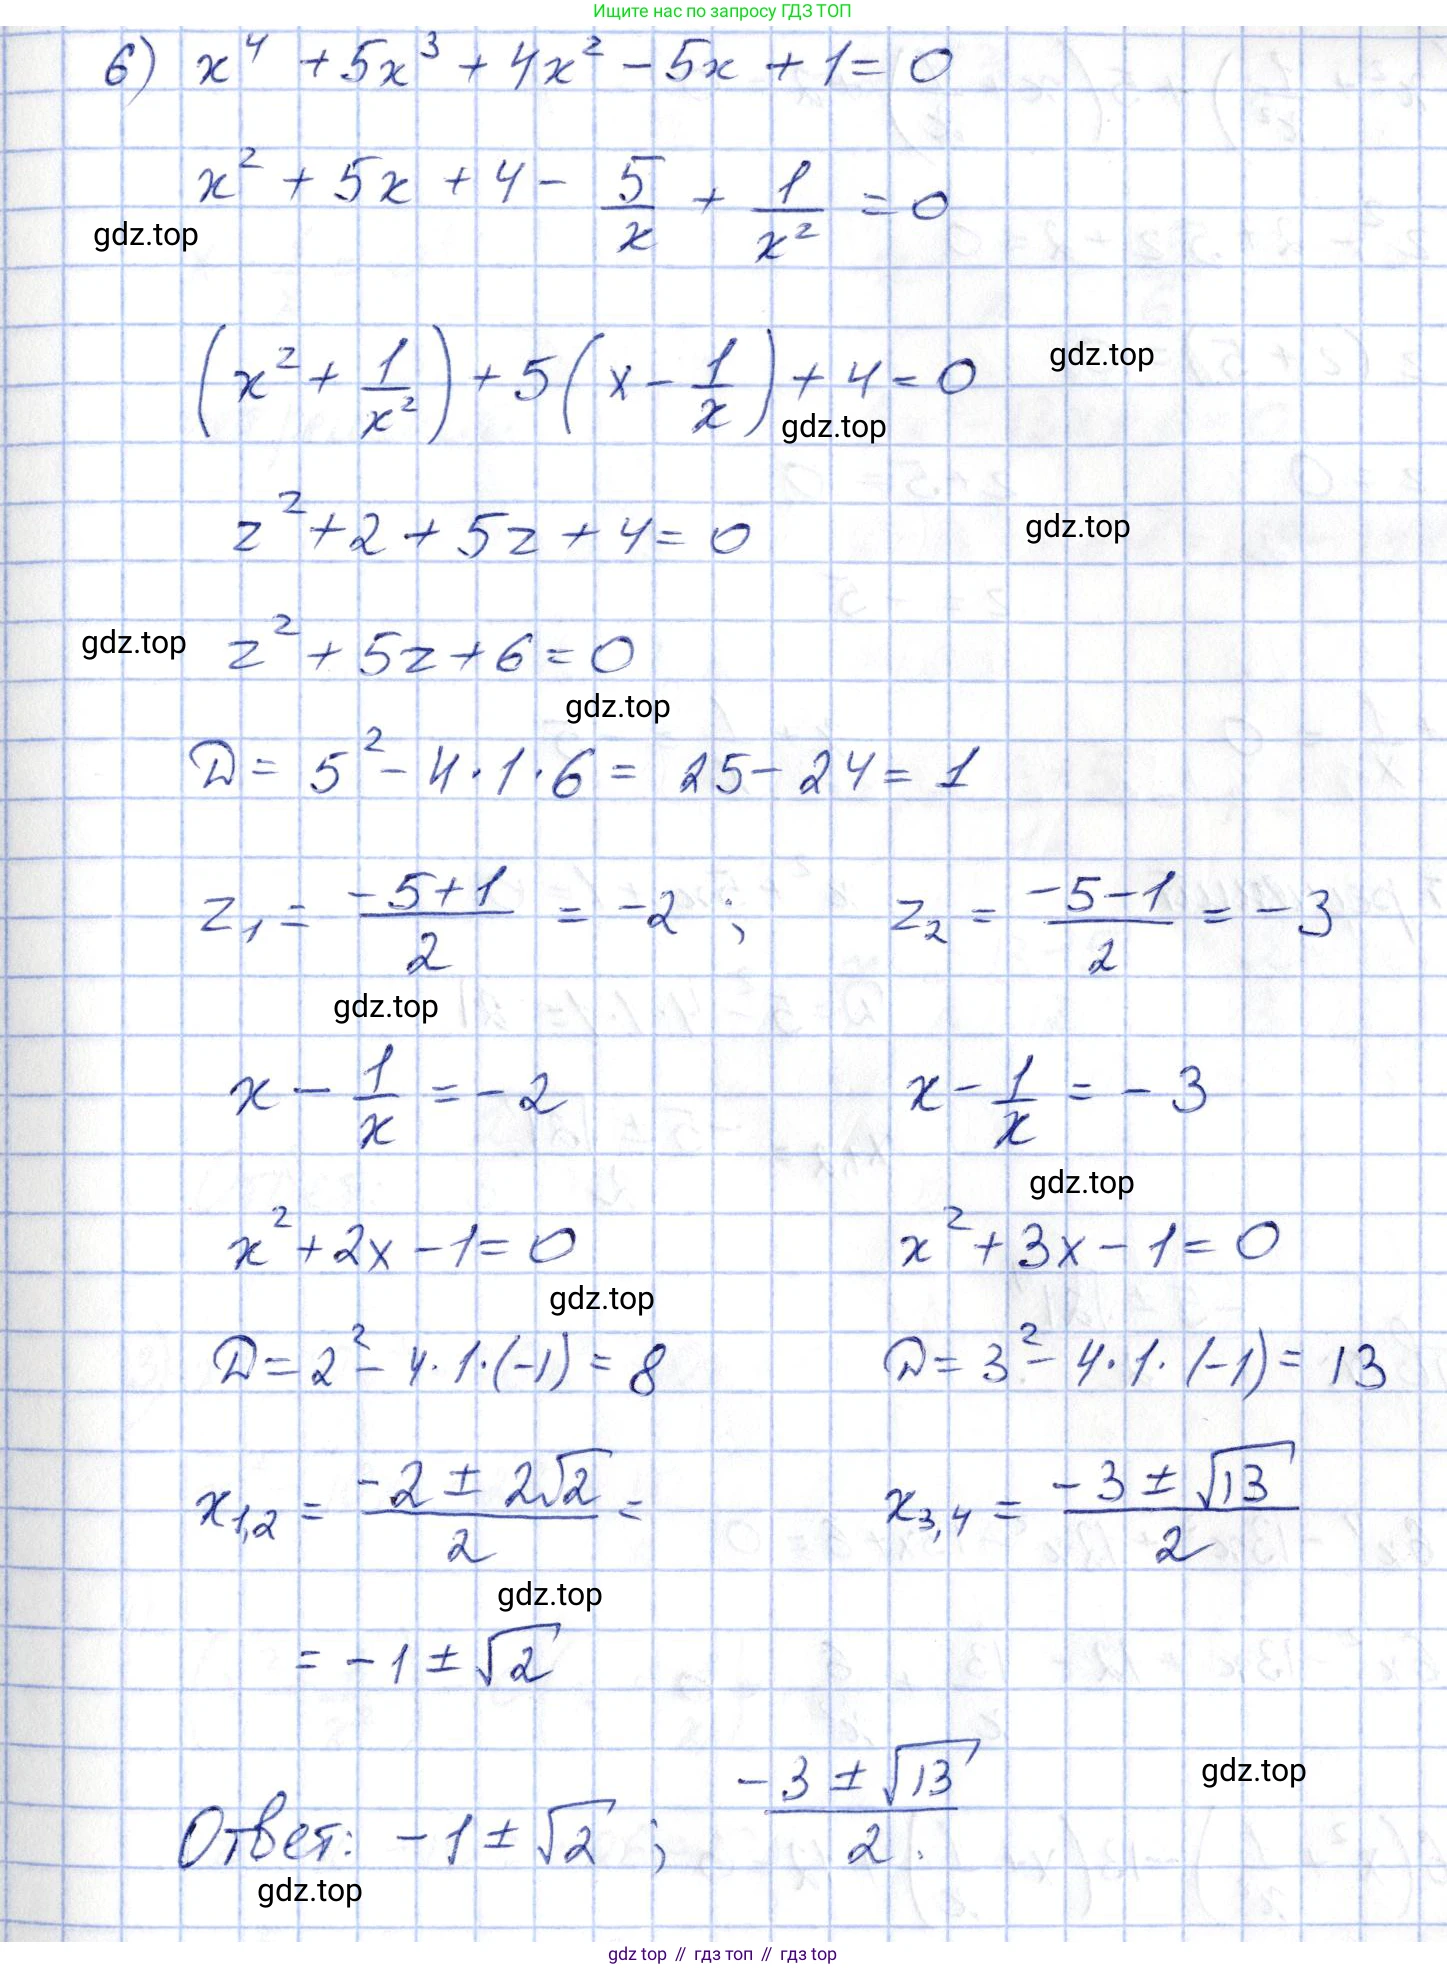 Ищите нас по запросу ГДЗ ТОП
6) x⁴ + 5x³ + 4x² - 5x + 1 = 0
x² + 5x + 4 - 5/x + 1/x² = 0
gdz.top
(x² + 1/x²) + 5(x - 1/x) + 4 = 0
gdz.top
gdz.top
z² + 2 + 5z + 4 = 0
gdz.top
gdz.top
z² + 5z + 6 = 0
gdz.top
D = 5² - 4·1·6 = 25 - 24 = 1
z₁ = (-5+1)/2 = -2 ; z₂ = (-5-1)/2 = -3
gdz.top
x - 1/x = -2 x - 1/x = -3
gdz.top
x² + 2x - 1 = 0 x² + 3x - 1 = 0
gdz.top
D = 2² - 4·1·(-1) = 8 D = 3² - 4·1·(-1) = 13
x₁,₂ = (-2 ± 2√2)/2 = x₃,₄ = (-3 ± √13)/2
gdz.top
= -1 ± √2
gdz.top
Ответ: -1 ± √2 ; (-3 ± √13)/2.
gdz.top
gdz top // гдз топ // гдз top